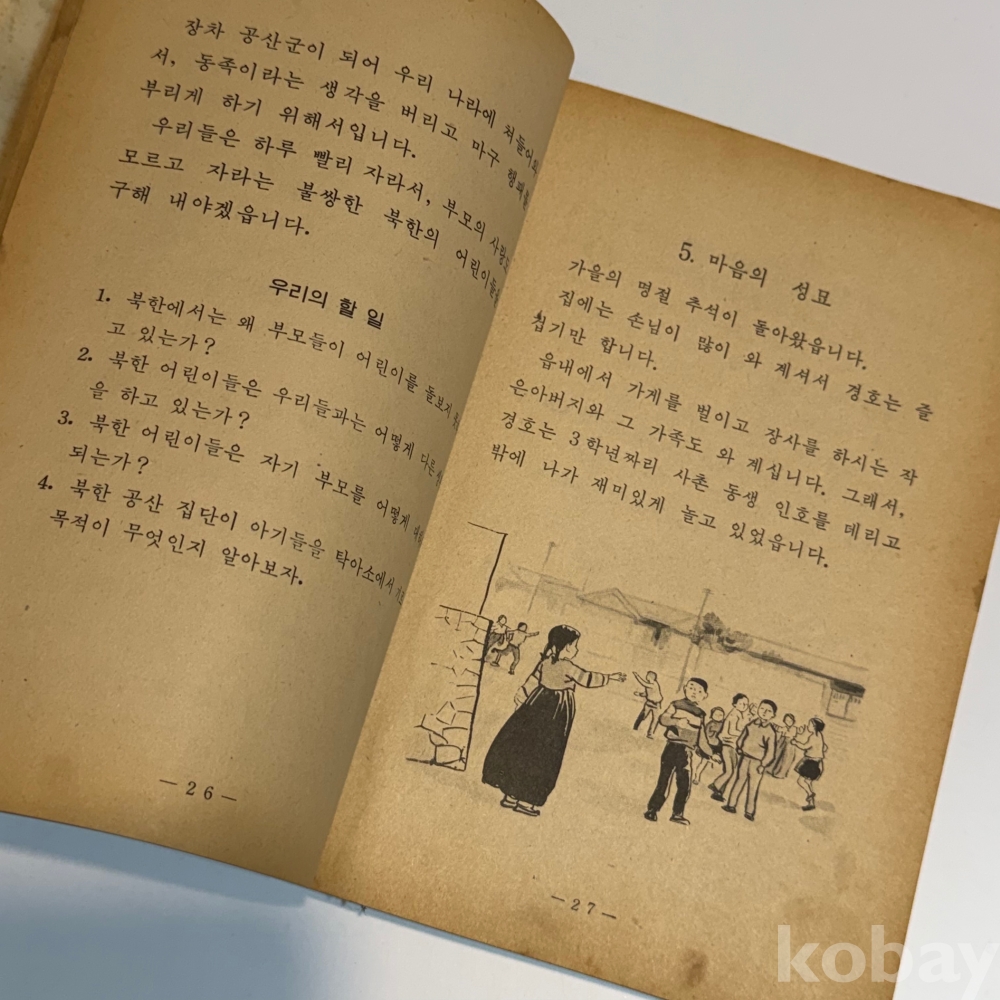 장차 공산군이 되어 우리 나라에 쳐들어와
서, 동족이라는 생각을 버리고 마구 행패를
부리게 하기 위해서입니다.
우리들은 하루 빨리 자라서, 부모의 사랑도
모르고 자라는 불쌍한 북한의 어린이들을
구해 내야겠읍니다.
우리의 할 일
1. 북한에서는 왜 부모들이 어린이를 돌보지
고 있는가?
2. 북한 어린이들은 우리들과는 어떻게 다른
을 하고 있는가?
3. 북한 어린이들은 자기 부모를 어떻게
되는가?
4. 북한 공산 집단이 아기들을 탁아소에서
목적이 무엇인지 알아보자.
— 26 —
5. 마음의 성묘
가을의 명절 추석이 돌아왔읍니다.
집에는 손님이 많이 와 계셔서 경호는 즐
겁기만 합니다.
읍내에서 가게를 벌이고 장사를 하시는 작
은아버지와 그 가족도 와 계십니다. 그래서,
경호는 3학년짜리 사촌 동생 인호를 데리고
밖에 나가 재미있게 놀고 있었읍니다.
— 27 —
kobay